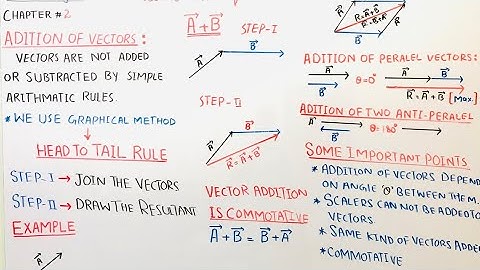 CHAPTER #2
ADITION OF VECTORS:
VECTORS ARE NOT ADDED
OR SUBTRACTED BY SIMPLE
ARITHMATIC RULES.
* WE USE GRAPHICAL METHOD
↓
HEAD TO TAIL RULE
STEP-I → JOIN THE VECTORS
STEP-II → DRAW THE RESULTANT
EXAMPLE
A⃗
A⃗+B⃗
STEP-I
A⃗
B⃗
STEP-II
A⃗
B⃗
R⃗=A⃗+B⃗
VECTOR ADDITION
IS COMMOTATIVE
A⃗+B⃗ = B⃗+A⃗
R⃗=A⃗+B⃗
R⃗=B⃗+A⃗
B⃗
ADITION OF PERALEL VECTORS:
A⃗
B⃗
θ=0°
A⃗
B⃗
R⃗=A⃗+B⃗ [Max.]
ADITION OF TWO ANTI-PERALEL
A⃗
B⃗
θ=180°
SOME IMPORTANT POINTS
* ADDITION OF VECTORS DEPEND
ON ANGLE 'θ' BETWEEN THEM.
* SCALERS CAN NOT BE ADDED TO
VECTORS.
* SAME KIND OF VECTORS ADDED
* COMMOTATIVE